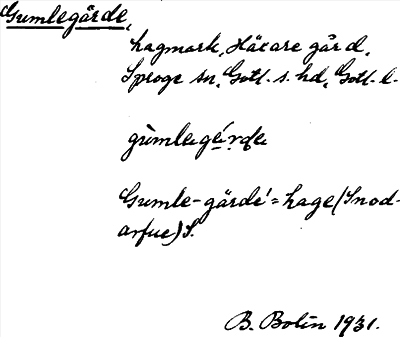 Gumlegärde,
hagmark, Häcare gård,
Sproge sn, Gotl. s. hd, Gotl. l.
gùmlegę́rde
Gumle-gärde' = hage (Snod-
arfue) S.
B. Bolin 1931.